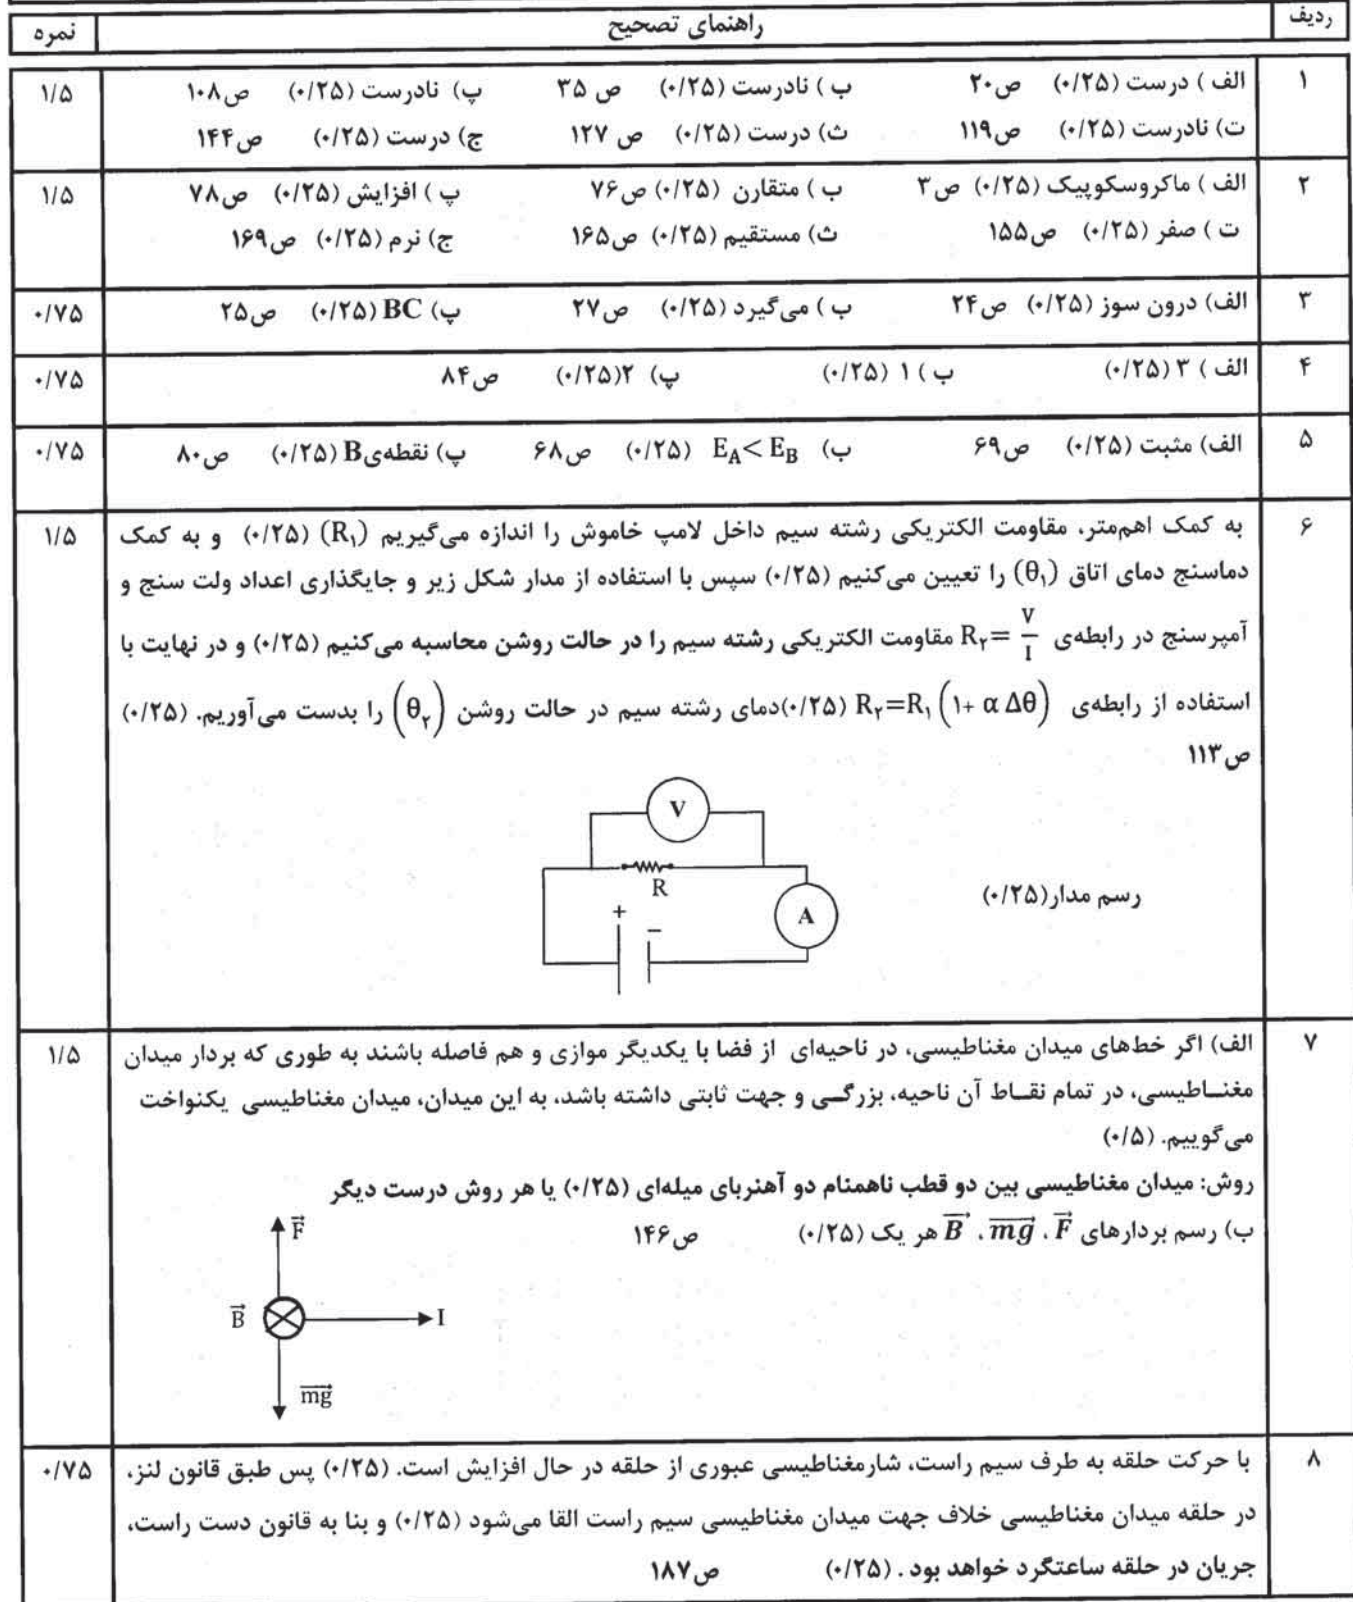 ردیف راهنمای تصحیح نمره
۱ الف ) درست (۰/۲۵) ص۲۰ ب ) نادرست (۰/۲۵) ص ۳۵ پ) نادرست (۰/۲۵) ص۱۰۸ ۱/۵
ت) نادرست (۰/۲۵) ص۱۱۹ ث) درست (۰/۲۵) ص ۱۲۷ ج) درست (۰/۲۵) ص۱۴۴
۲ الف ) ماکروسکوپیک (۰/۲۵) ص۳ ب ) متقارن (۰/۲۵) ص۷۶ پ ) افزایش (۰/۲۵) ص۷۸ ۱/۵
ت ) صفر (۰/۲۵) ص۱۵۵ ث) مستقیم (۰/۲۵) ص۱۶۵ ج) نرم (۰/۲۵) ص۱۶۹
۳ الف) درون سوز (۰/۲۵) ص۲۴ ب ) می‌گیرد (۰/۲۵) ص۲۷ پ) BC (۰/۲۵) ص۲۵ ۰/۷۵
۴ الف ) ۳ (۰/۲۵) ب ) ۱ (۰/۲۵) پ) ۲(۰/۲۵) ص۸۴ ۰/۷۵
۵ الف) مثبت (۰/۲۵) ص۶۹ ب) E_A< E_B (۰/۲۵) ص۶۸ پ) نقطه‌ی B (۰/۲۵) ص۸۰ ۰/۷۵
۶ به کمک اهم‌متر، مقاومت الکتریکی رشته سیم داخل لامپ خاموش را اندازه می‌گیریم (R₁) (۰/۲۵) و به کمک ۱/۵
دماسنج دمای اتاق (θ₁) را تعیین می‌کنیم (۰/۲۵) سپس با استفاده از مدار شکل زیر و جایگذاری اعداد ولت سنج و
آمپرسنج در رابطه‌ی R₂= V/I مقاومت الکتریکی رشته سیم را در حالت روشن محاسبه می‌کنیم (۰/۲۵) و در نهایت با
استفاده از رابطه‌ی R₂=R₁ (۱+ α Δθ) (۰/۲۵)دمای رشته سیم در حالت روشن (θ₂) را بدست می‌آوریم. (۰/۲۵)
ص۱۱۳
V
R
رسم مدار(۰/۲۵)
A
+ −
۷ الف) اگر خط‌های میدان مغناطیسی، در ناحیه‌ای از فضا با یکدیگر موازی و هم فاصله باشند به طوری که بردار میدان ۱/۵
مغنــاطیسی، در تمام نقــاط آن ناحیه، بزرگــی و جهت ثابتی داشته باشد، به این میدان، میدان مغناطیسی یکنواخت
می‌گوییم. (۰/۵)
روش: میدان مغناطیسی بین دو قطب ناهمنام دو آهنربای میله‌ای (۰/۲۵) یا هر روش درست دیگر
ب) رسم بردارهای F⃗ ، mg⃗ ، B⃗ هر یک (۰/۲۵) ص۱۴۶
F⃗
B⃗ I
mg⃗
۸ با حرکت حلقه به طرف سیم راست، شارمغناطیسی عبوری از حلقه در حال افزایش است. (۰/۲۵) پس طبق قانون لنز، ۰/۷۵
در حلقه میدان مغناطیسی خلاف جهت میدان مغناطیسی سیم راست القا می‌شود (۰/۲۵) و بنا به قانون دست راست،
جریان در حلقه ساعتگرد خواهد بود . (۰/۲۵) ص۱۸۷